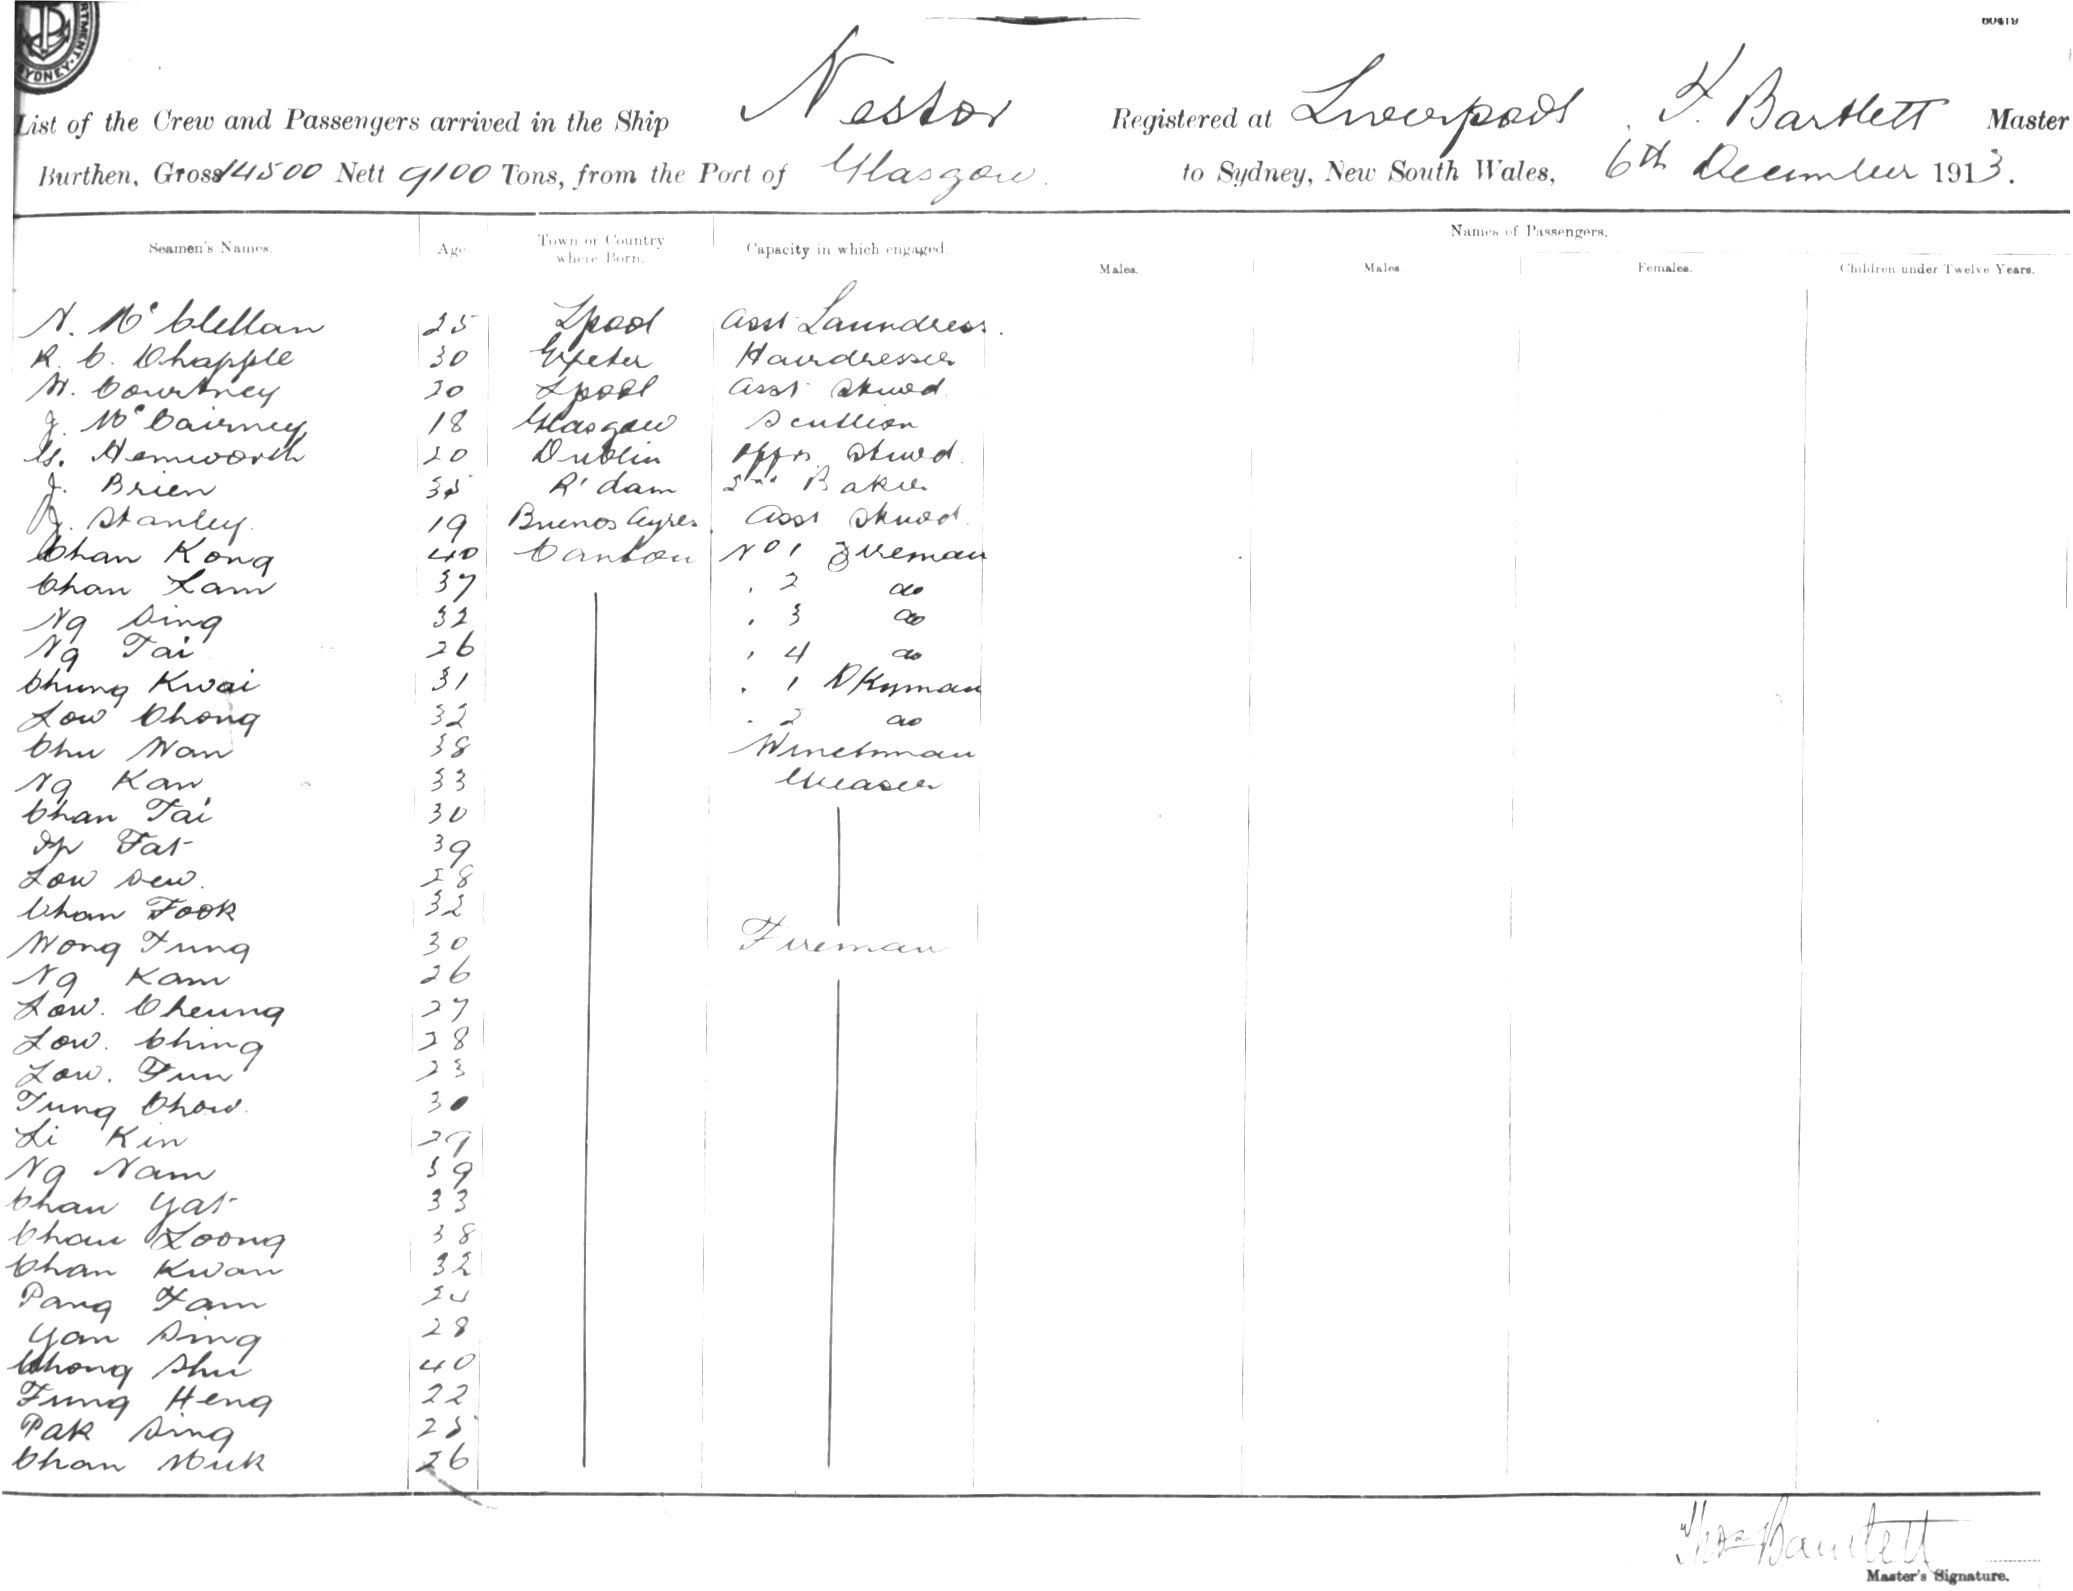 RTMENT. SYDNEY.
60419
List of the Crew and Passengers arrived in the Ship Nestor Registered at Liverpool T. Bartlett Master
Burthen, Gross 14500 Nett 9100 Tons, from the Port of Glasgow. to Sydney, New South Wales, 6th December 1913.
Names of Passengers.
Seamen's Names. Age Town or Country where Born. Capacity in which engaged. Males. Males Females. Children under Twelve Years.
N. McClellan 25 Lpool Asst Laundress.
R. C. Chapple 30 Exeter Hairdresser
W. Courtney 20 Lpool Asst Stwed
J. McCairney 18 Glasgow Scullion
G. Hemworth 20 Dublin Offrs Stwed.
J. Brien 35 R'dam 2nd Baker
J. Stanley. 19 Buenos Ayres Asst Stwed.
Chan Kong 40 Canton No 1 Fireman
Chan Lam 37 " 2 do
Ng Sing 32 " 3 do
Ng Tai 26 " 4 do
Chung Kwai 31 " 1 Dkyman
Low Chong 32 " 2 do
Chu Wan 38 Winchman
Ng Kan 33 Greaser
Chan Tai 30
Ip Fat 39
Low Sew. 28
Chan Fook 32
Wong Fung 30 Fireman
Ng Kam 26
Low. Cheung 27
Low. Ching 28
Low. Fun 23
Fung Chow. 30
Li Kin 29
Ng Nam 39
Chan Yat 33
Chan Loong 38
Chan Kwan 32
Pang Fam 24
Yan Sing 28
Chong Shu 40
Fung Heng 22
Pak Sing 25
Chan Muk 26
Thos Bartlett
Master's Signature.